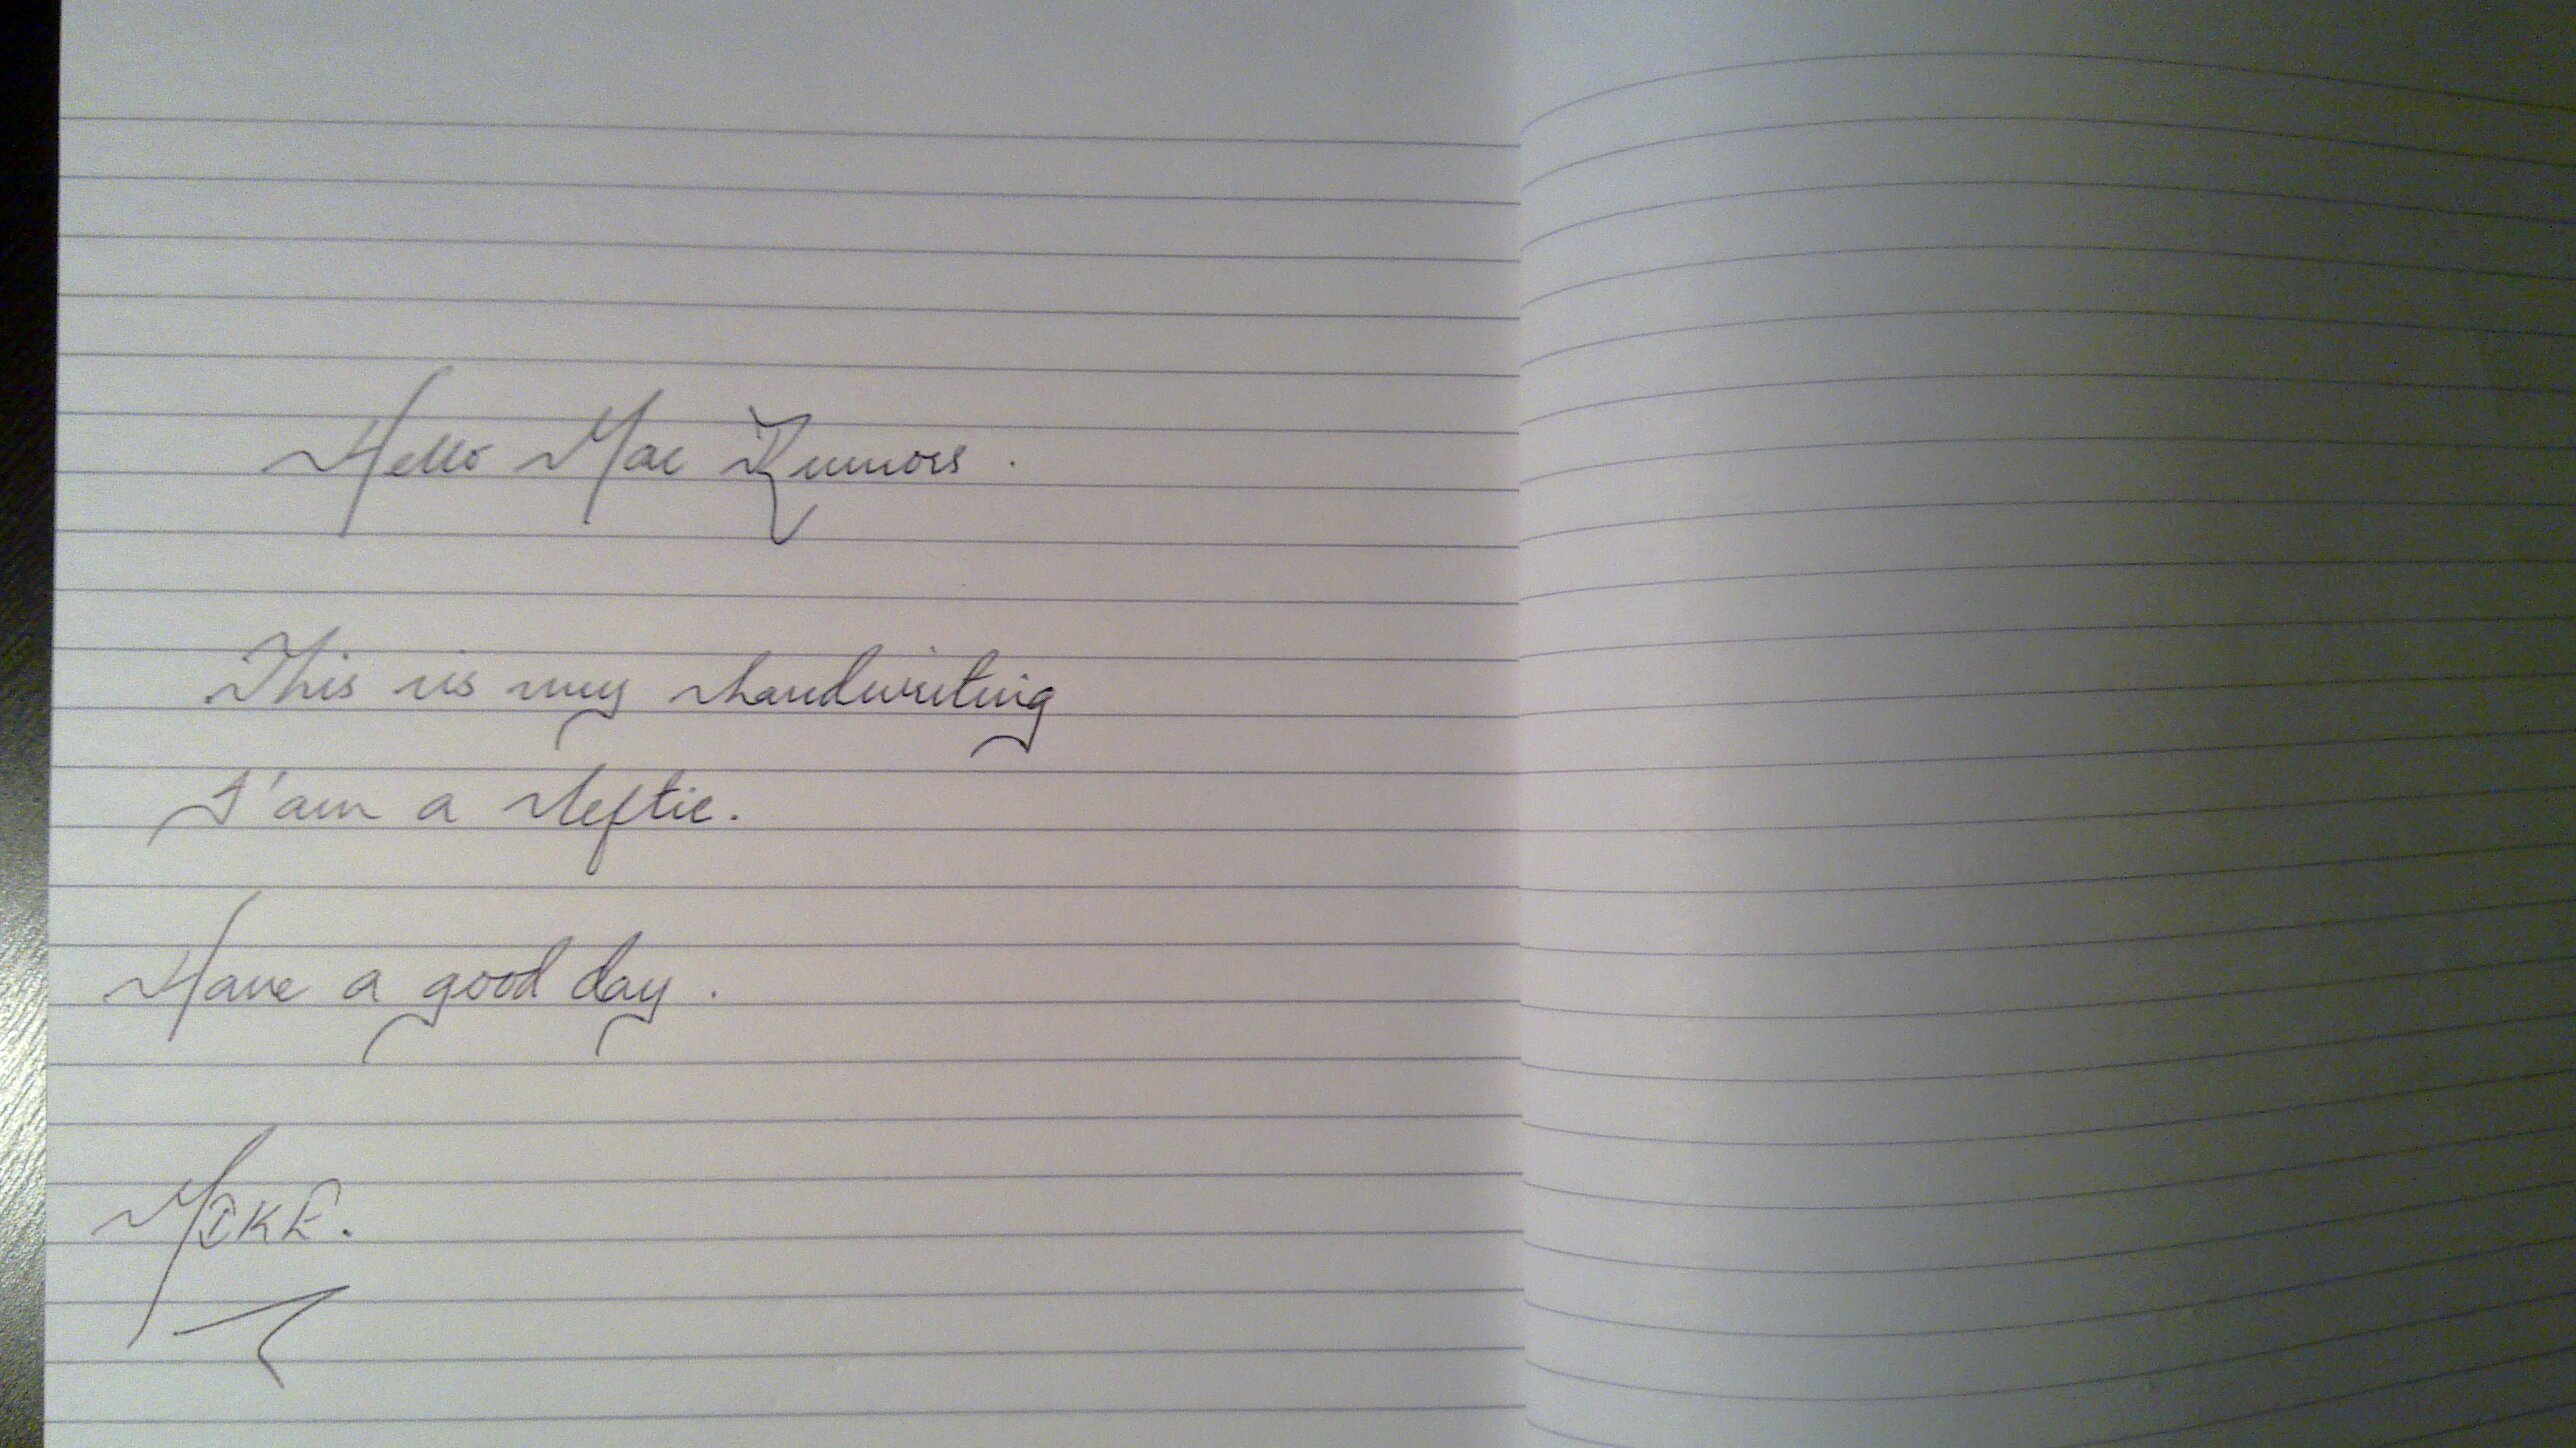 Hello Mac Rumors.
This is my handwriting
I'am a leftie.
Have a good day.
MIKE.